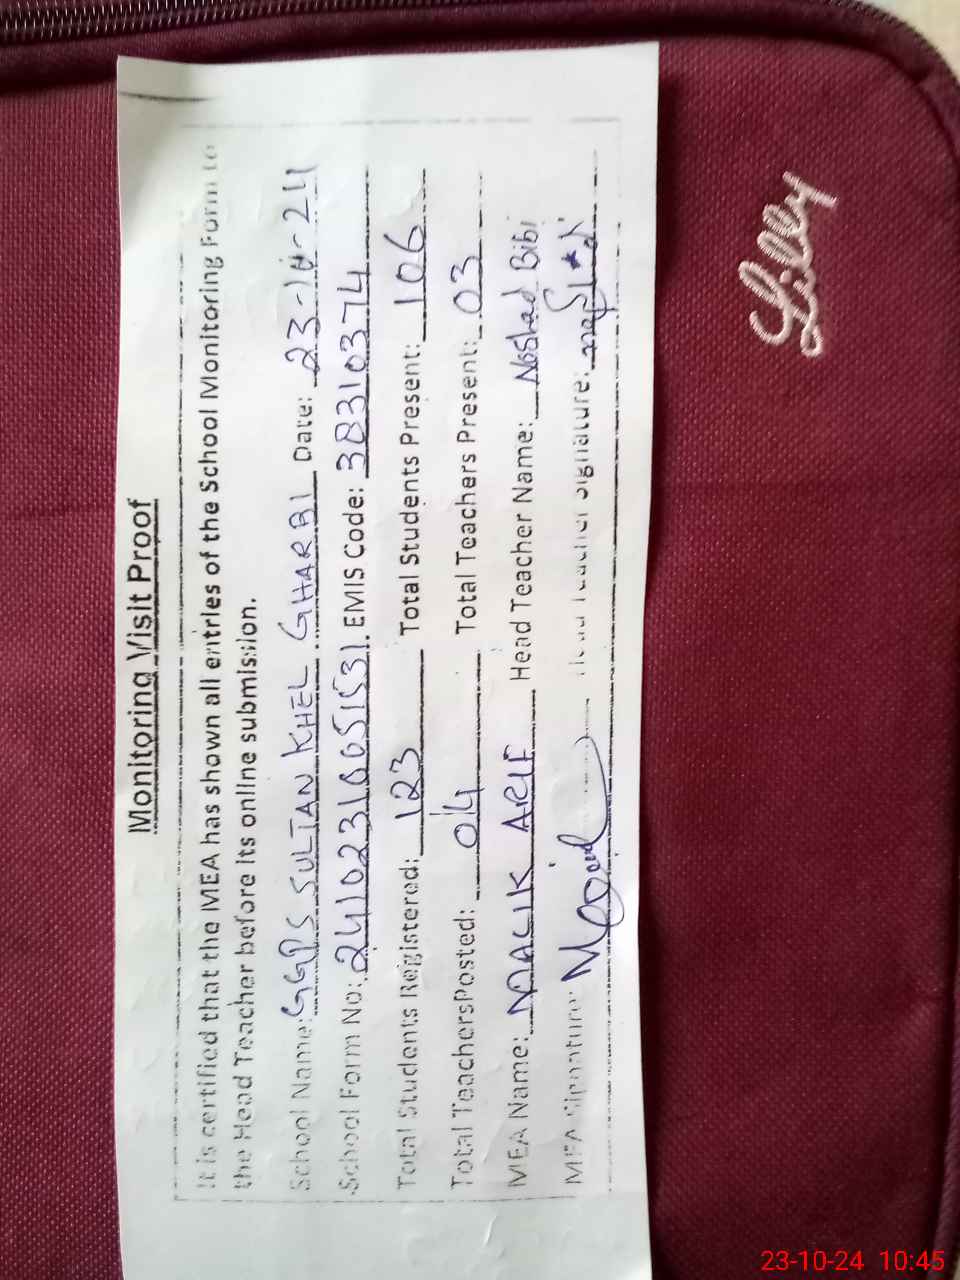 Monitoring Visit Proof
It is certified that the MEA has shown all entries of the School Monitoring Form to
the Head Teacher before its online submission.
School Name: GGPS SULTAN KHEL GHARBI Date: 23-10-24
School Form No: 24102310651531. EMIS Code: 38310374
Total Students Registered: 123 Total Students Present: 106
Total TeachersPosted: 04 Total Teachers Present: 03
MEA Name: MALIK ARIF Head Teacher Name: Noshad Bibi
MEA Signature: Head Teacher Signature:
Lilly
23-10-24 10:45